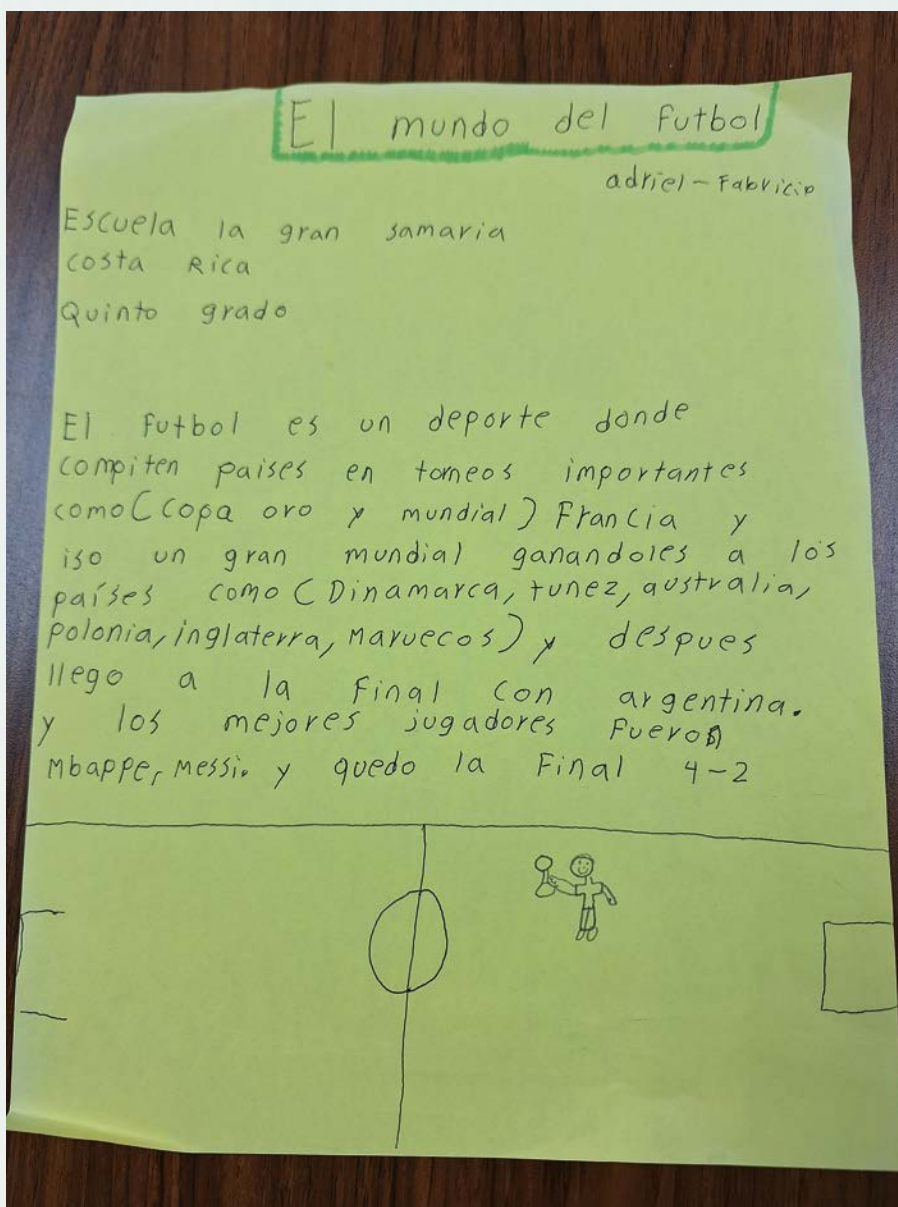 El mundo del futbol
adriel - Fabricio
Escuela la gran samaria
costa Rica
Quinto grado
El futbol es un deporte donde
compiten paises en torneos importantes
como (Copa oro y mundial) Francia y
iso un gran mundial ganandoles a los
países como (Dinamarca, tunez, australia,
polonia, inglaterra, Maruecos) y despues
llego a la final con argentina.
y los mejores jugadores fueron
Mbappe, Messi. y quedo la Final 4-2